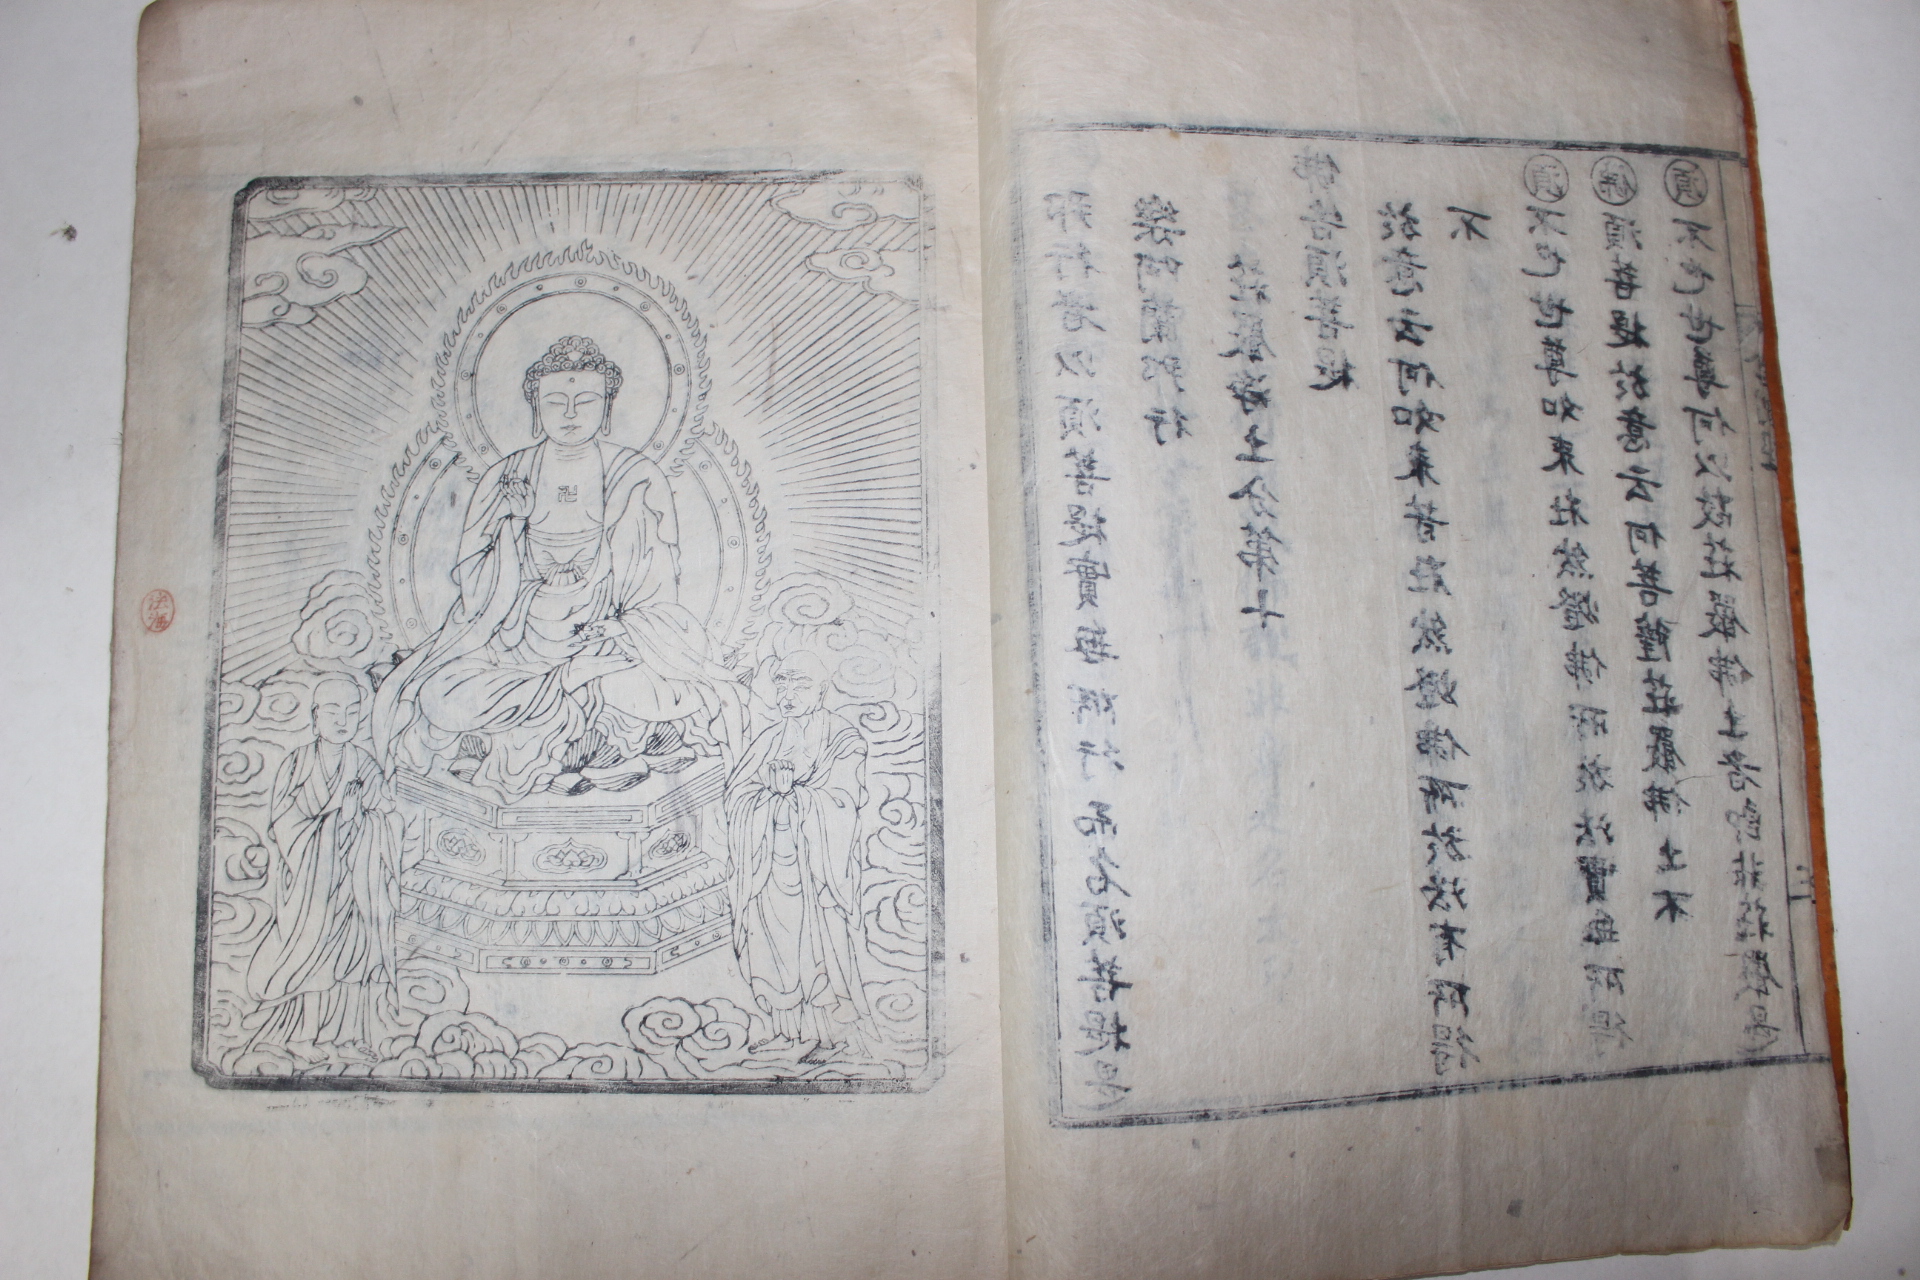 那行者以須菩提實無所行而名須菩提是
樂阿蘭那行
莊嚴淨土分第十
佛告須菩提
於意云何如來昔在然燈佛所於法有所得
不
須不也世尊如來在然燈佛所於法實無所得
佛須菩提於意云何菩薩莊嚴佛土不
須不也世尊何以故莊嚴佛土者即非莊嚴是
卍
法海